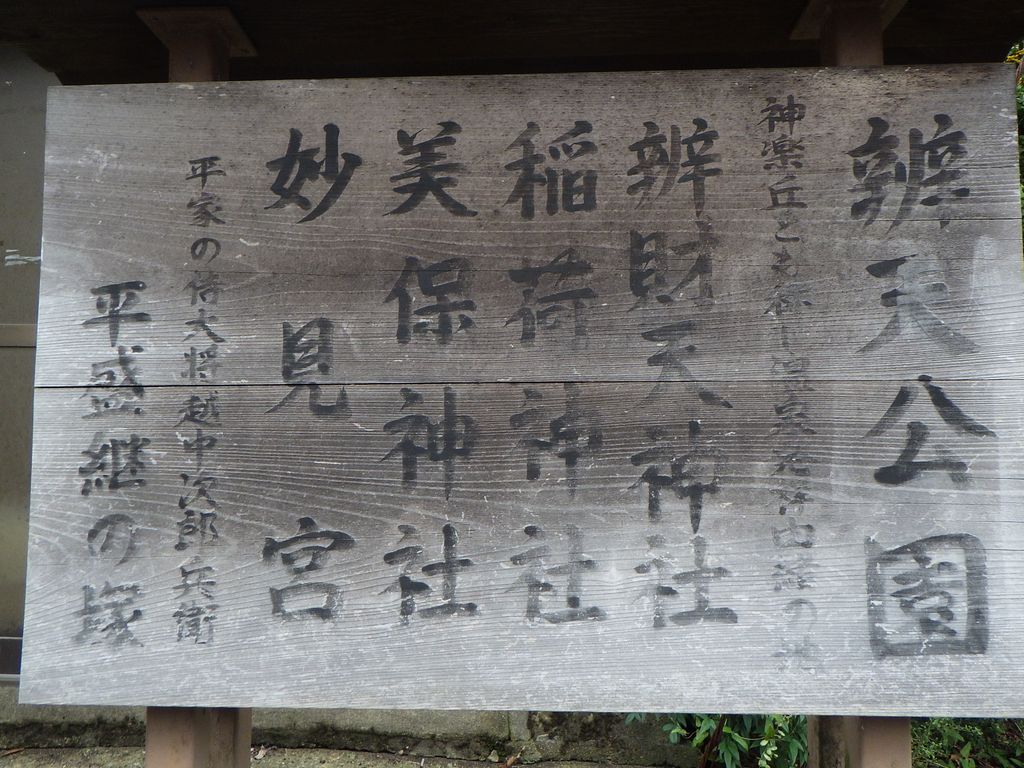 辨天公園
神楽丘とも称し温泉寺元
辨財天神社
稲荷神社
美保神社
妙見宮
平家の侍大将越中次郎兵衛
平盛継の塚